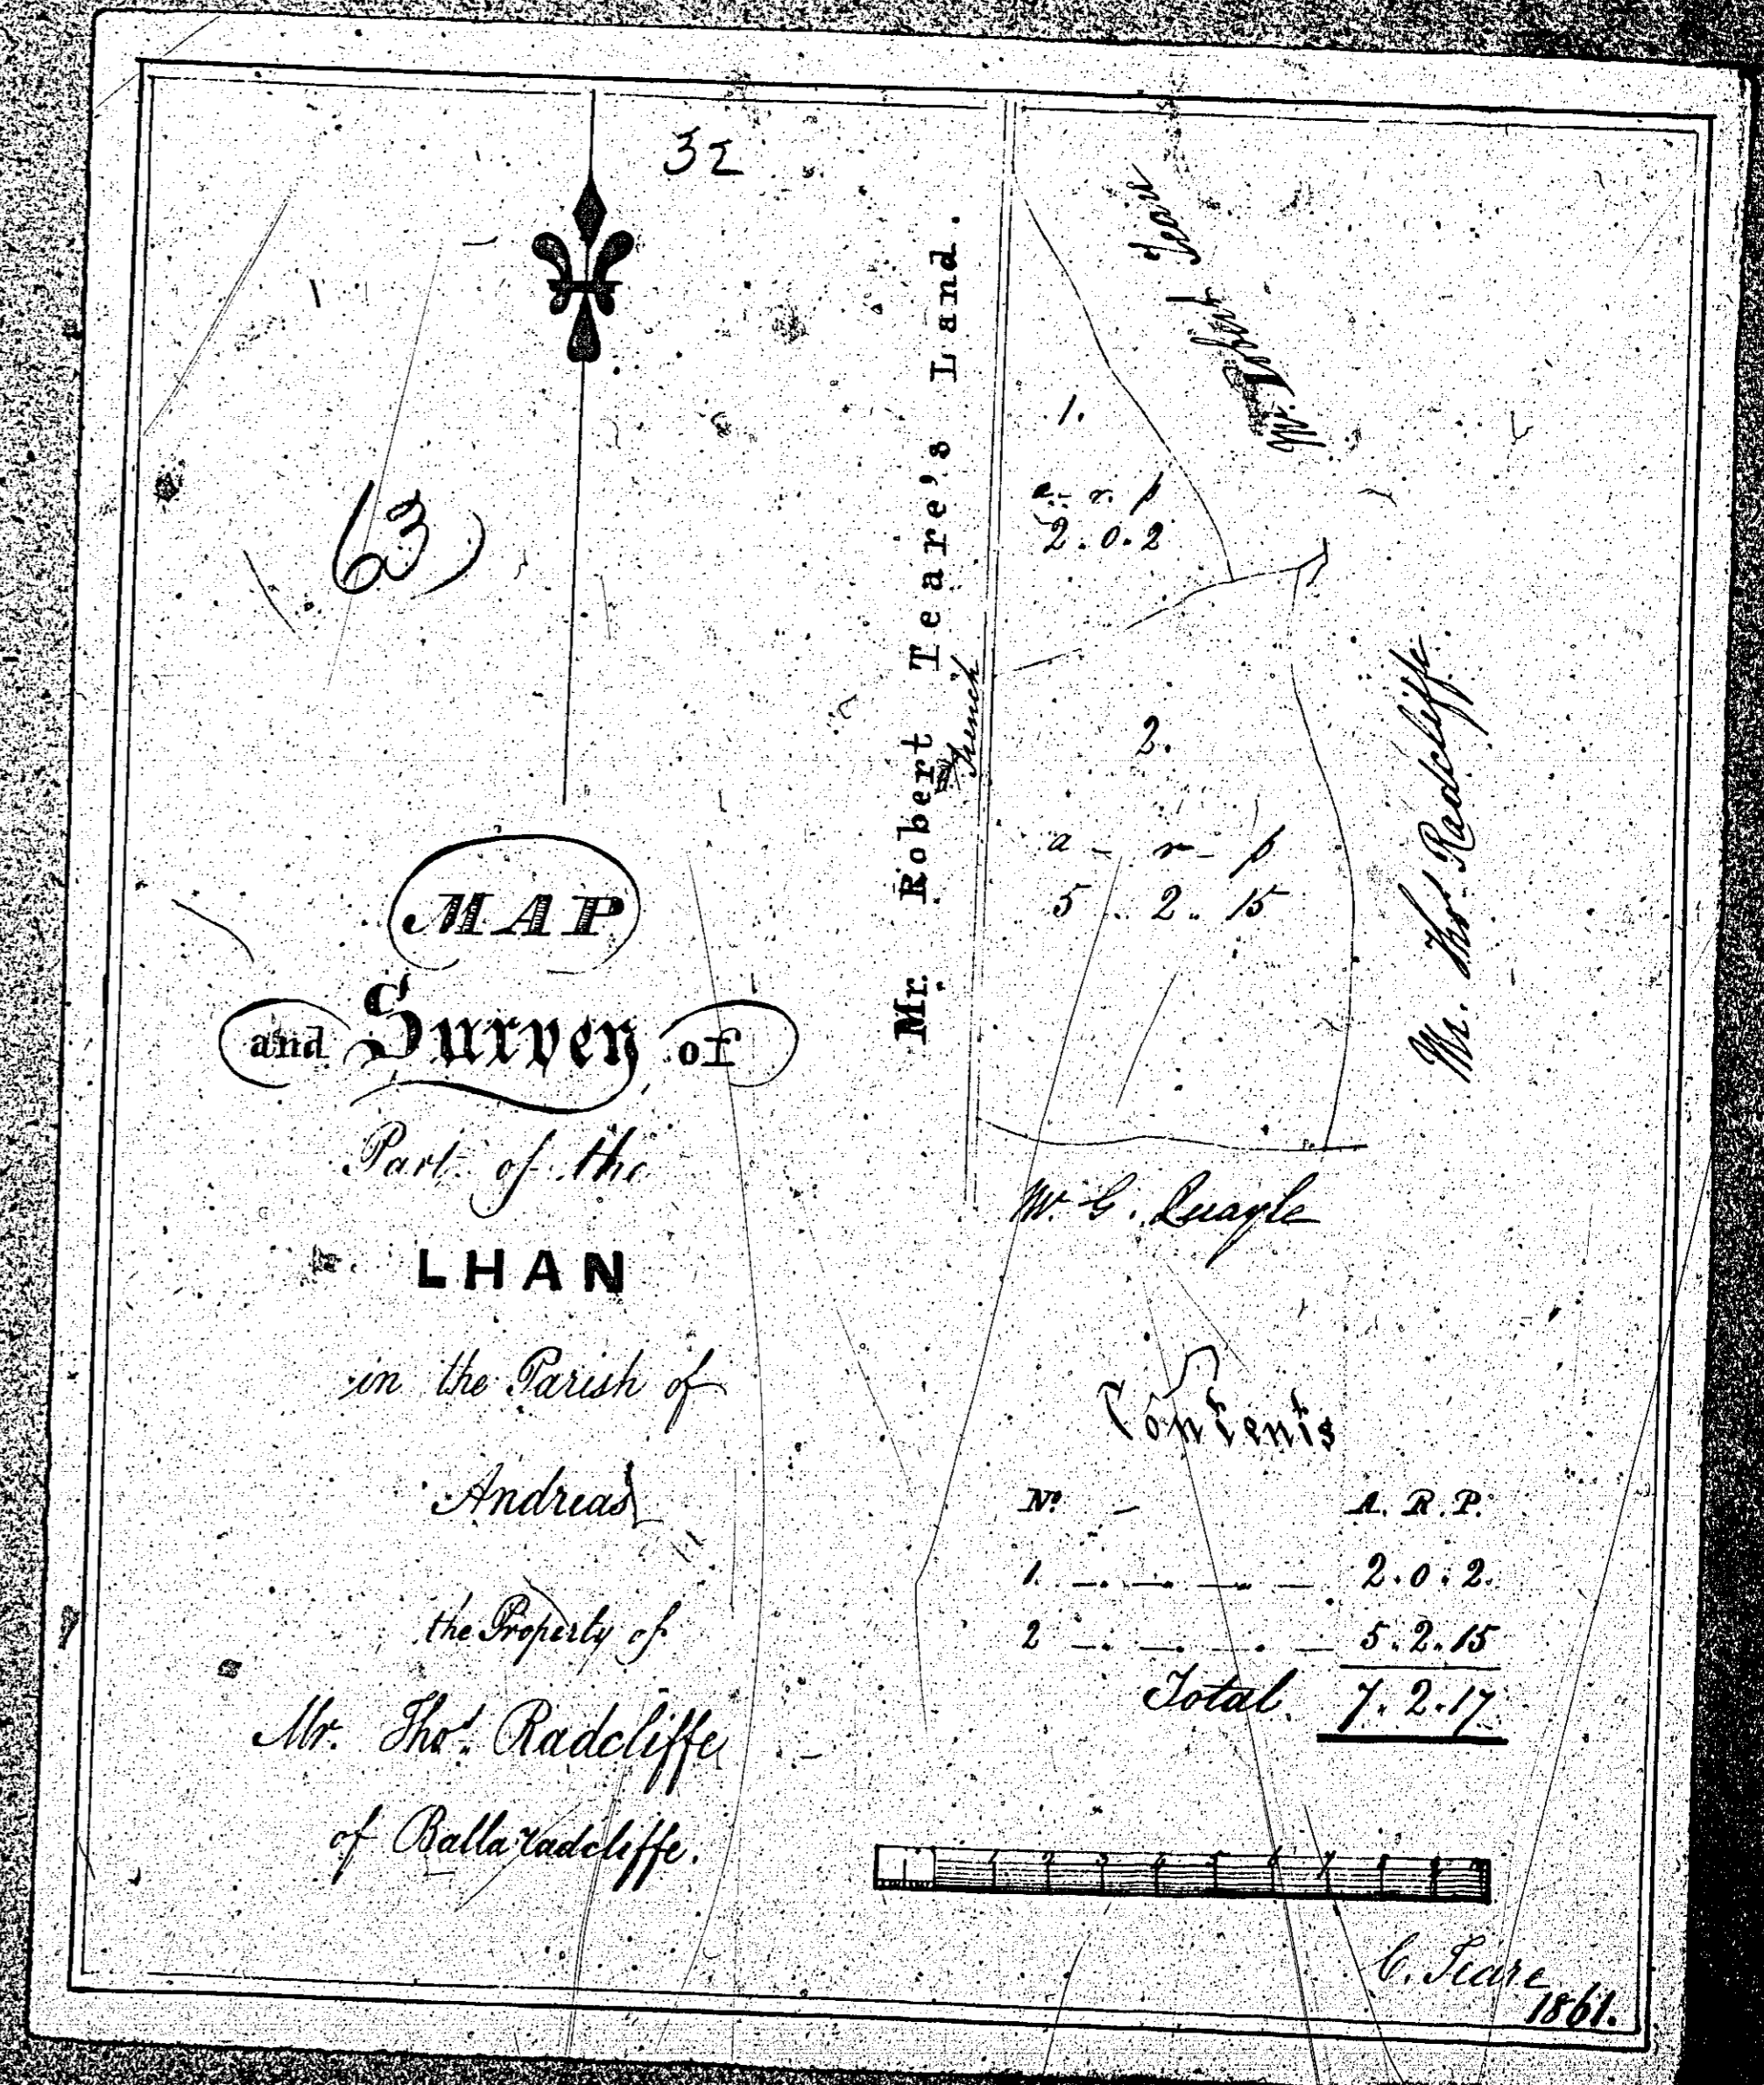 32
63
MAP
and Survey of
Part of the
LHAN
in the Parish of
Andreas
the Property of
Mr. Thos. Radcliffe
of Balla radcliffe.
Mr. Robert Teare's Land.
1.
a - r. p
2. 0. 2
2.
a - r - p
5 .. 2 .. 15
Mr. Thos. Radcliffe
Mr. G. Quayle
Contents
No. - A. R. P.
1. — — — — 2. 0. 2.
2 — — — — 5. 2. 15
Total. 7. 2. 17
1 2 3 4 5 6 7 8 9 10
C. Teare
1861.